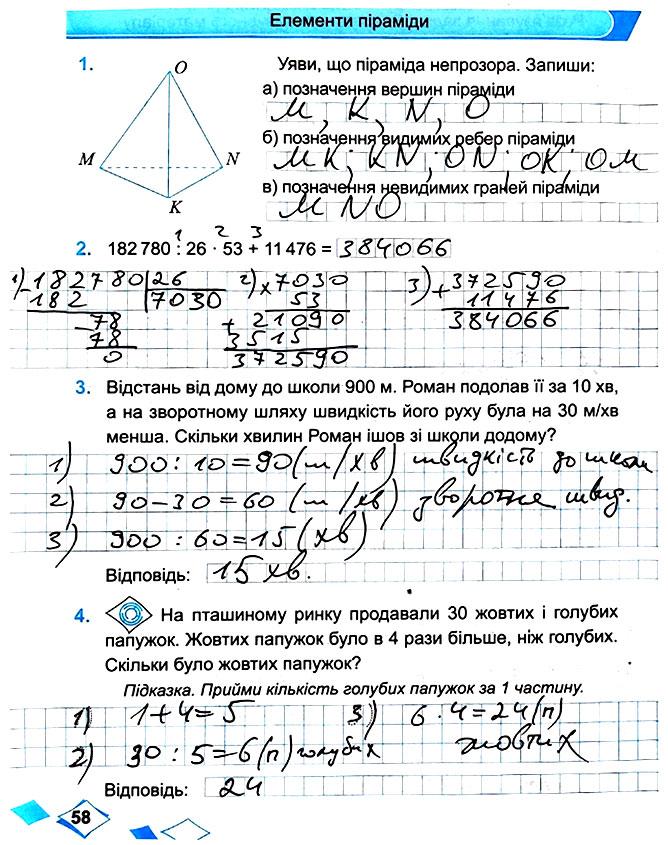 Елементи піраміди
1.
O
M
N
K
Уяви, що піраміда непрозора. Запиши:
а) позначення вершин піраміди
M, K, N, O
б) позначення видимих ребер піраміди
MK; KN; ON; OK; OM
в) позначення невидимих граней піраміди
MNO
1 2 3
2. 182 780 : 26 · 53 + 11 476 = 384066
1) 182780 26
182 7030
78
78
0
2) × 7030
53
+ 21090
3515
372590
3) + 372590
11476
384066
3. Відстань від дому до школи 900 м. Роман подолав її за 10 хв,
а на зворотному шляху швидкість його руху була на 30 м/хв
менша. Скільки хвилин Роман ішов зі школи додому?
1) 900 : 10 = 90 (м/хв) швидкість до школи
2) 90 – 30 = 60 (м/хв) зворотне швид.
3) 900 : 60 = 15 (хв)
Відповідь: 15 хв.
4. На пташиному ринку продавали 30 жовтих і голубих
папужок. Жовтих папужок було в 4 рази більше, ніж голубих.
Скільки було жовтих папужок?
Підказка. Прийми кількість голубих папужок за 1 частину.
1) 1 + 4 = 5
2) 30 : 5 = 6 (п) голубих
3) 6 · 4 = 24 (п)
жовтих
Відповідь: 24
58